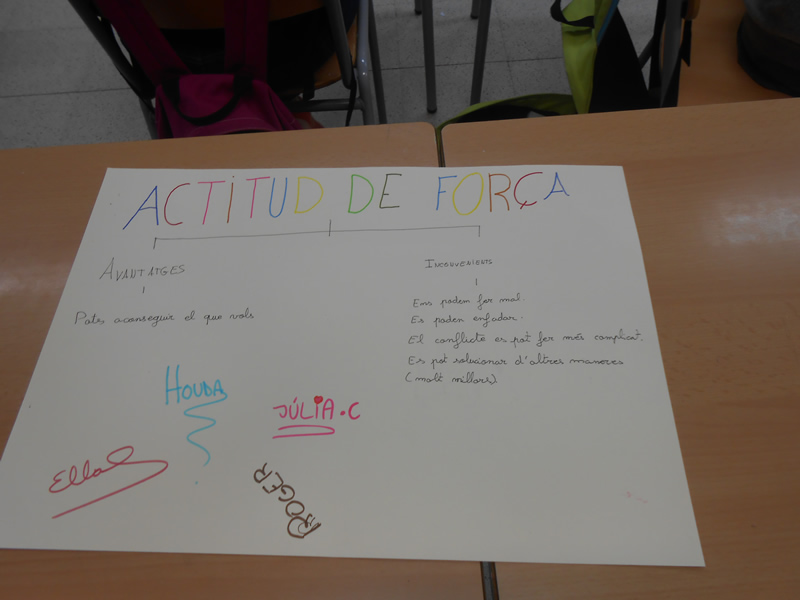 ACTITUD DE FORÇA
AVANTATGES
Pots aconseguir el que vols
INCONVENIENTS
Ens podem fer mal.
Es poden enfadar.
El conflicte es pot fer més complicat.
Es pot solucionar d'altres maneres
(molt millors)
HOUDA
JÚLIA.C
Ella
ROGER